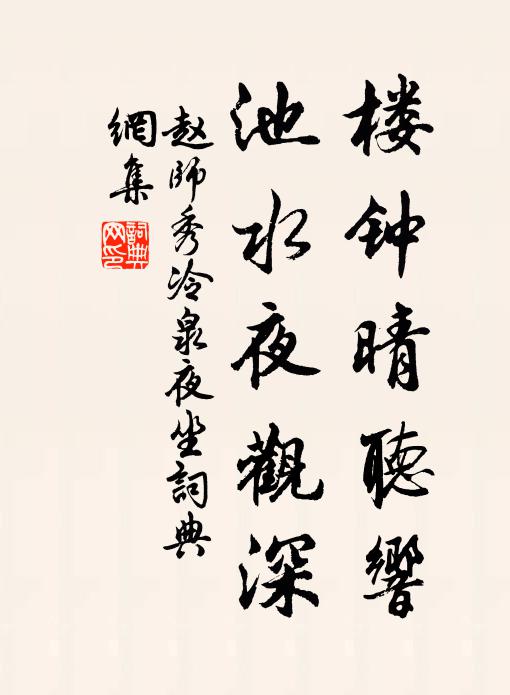 楼钟晴聽響
池水夜觀深
赵師秀冷泉夜坐詞典
網集
詞典网印